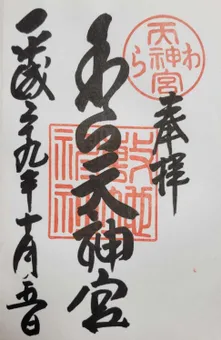 天神宮
わら
奉拝
わら天神宮
敷地
神社
平成二九年十月五日